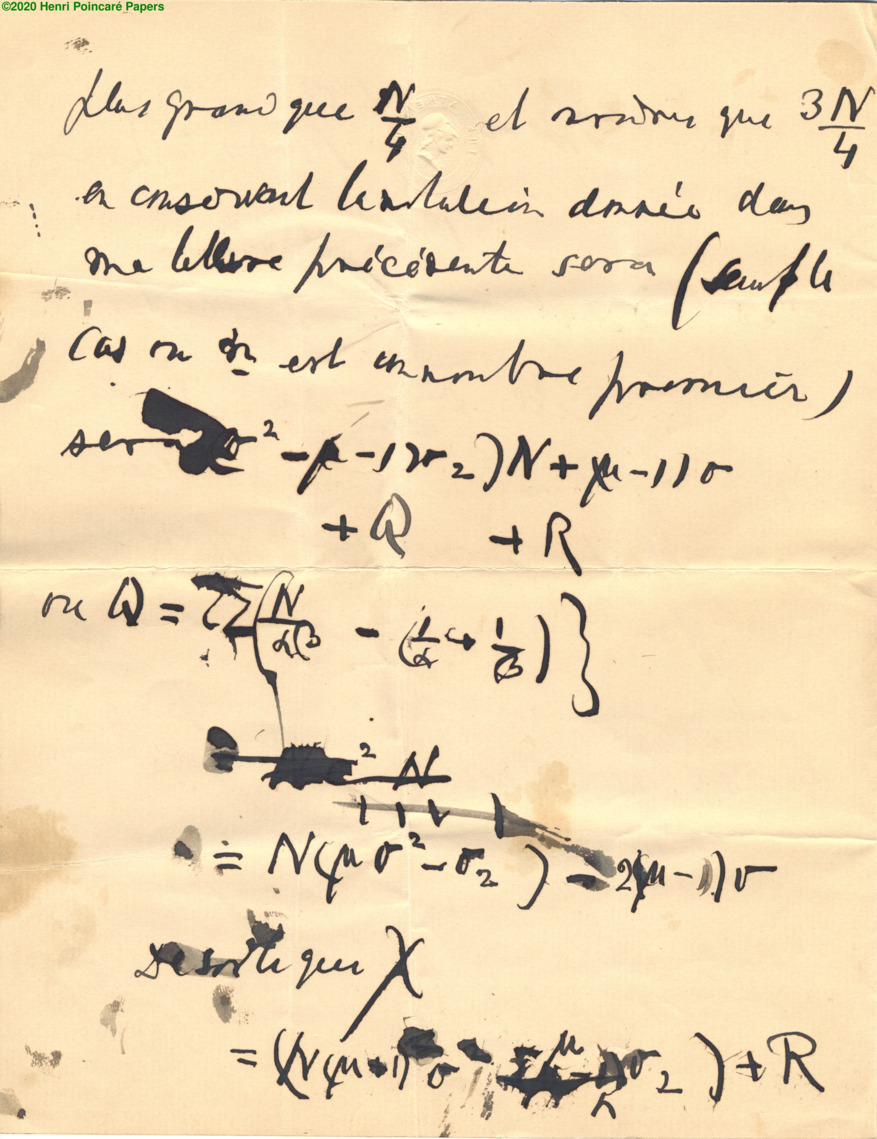 ©2020 Henri Poincaré Papers
plus grand que N/4 et moindre que 3N/4
en conservant la notation donnée dans
ma lettre précédente sera (sauf le
cas ou n est un nombre premier)
sera σ² - μ - 1)σ₂)N + (μ - 1)σ
+ Q + R
ou Q = {Σ(N/αβ - (1/α + 1/β)}
² N
= N(μσ² - σ₂) - 2(μ - 1)σ
De sorte que X
= (N(μ+1)σ - σ₂) + R